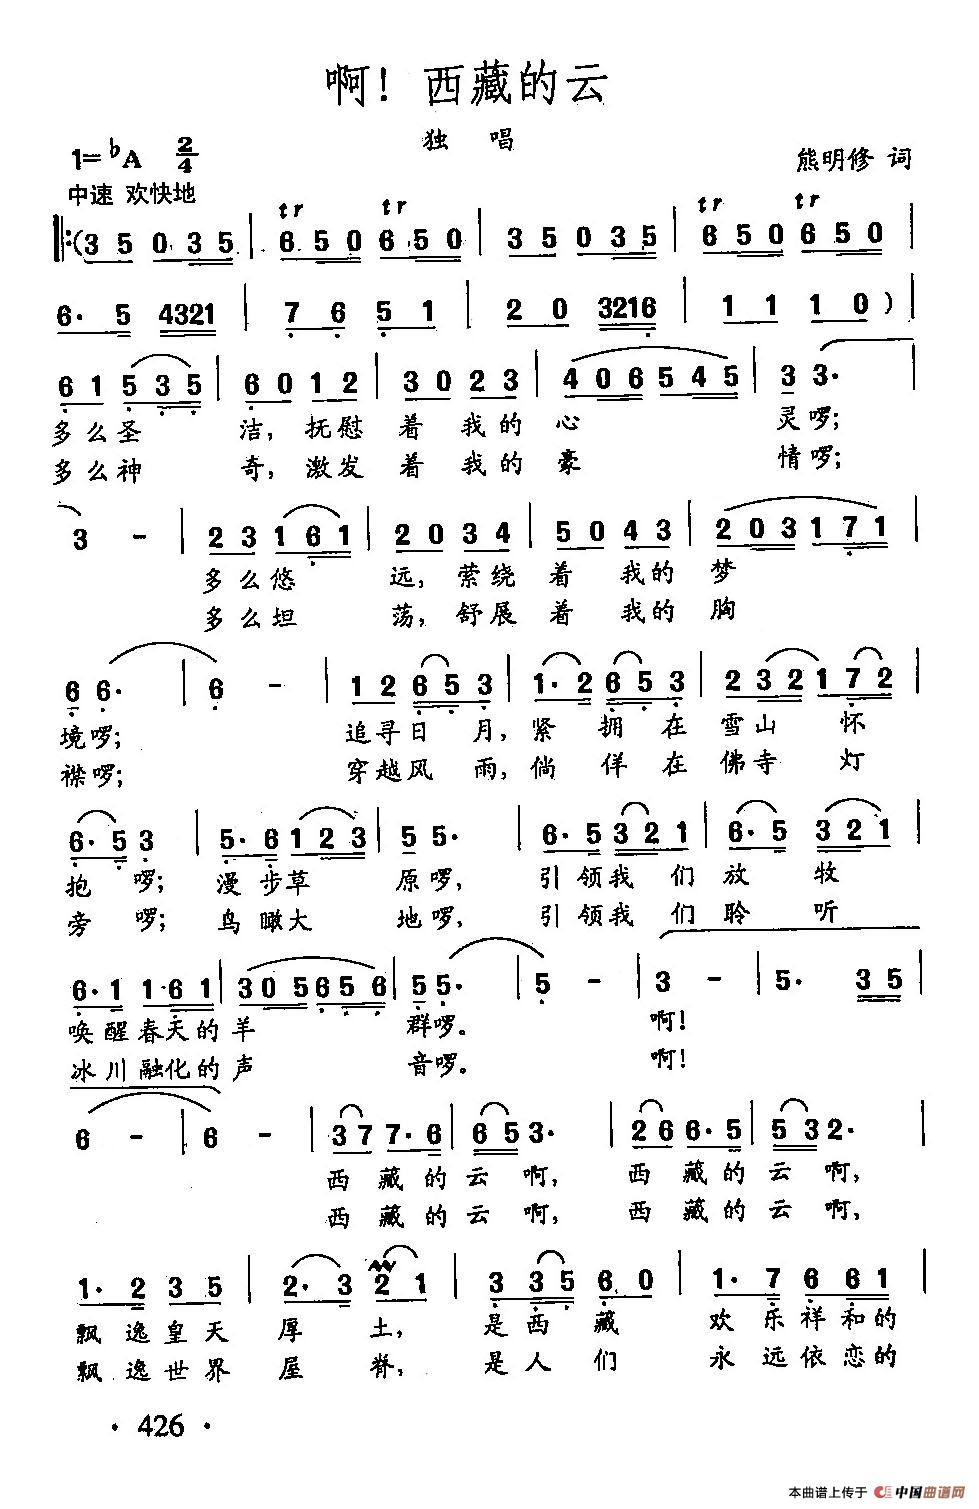 啊！西藏的云
独 唱
1=♭A 2/4
熊明修 词
中速 欢快地
tr tr tr tr
(3 5 0 3 5 | 6 5 0 6 5 0 | 3 5 0 3 5 | 6 5 0 6 5 0 |
6· 5 4321 | 7 6 5 1 | 2 0 3216 | 1 1 1 0 )
6 1 5 3 5 | 6 0 1 2 | 3 0 2 3 | 4 0 6 5 4 5 | 3 3· |
多么圣 洁，抚慰 着 我的 心 灵啰；
多么神 奇，激发 着 我的 豪 情啰；
3 - | 2 3 1 6 1 | 2 0 3 4 | 5 0 4 3 | 2 0 3 1 7 1 |
多么悠 远，萦绕 着 我的 梦
多么坦 荡，舒展 着 我的 胸
6 6· | 6 - | 1 2 6 5 3 | 1· 2 6 5 3 | 2 3 2 1 7 2 |
境啰； 追寻日 月，紧 拥 在 雪山 怀
襟啰； 穿越风 雨，倘 佯 在 佛寺 灯
6· 5 3 | 5· 6 1 2 3 | 5 5· | 6· 5 3 2 1 | 6· 5 3 2 1 |
抱 啰；漫步草 原啰， 引领我 们 放 牧
旁 啰；鸟瞰大 地啰， 引领我 们 聆 听
6· 1 1 6 1 | 3 0 5 6 5 6 | 5 5· | 5 - | 3 - | 5· 3 5 |
唤醒春天的羊 群啰。 啊！
冰川融化的声 音啰。 啊！
6 - | 6 - | 3 7 7· 6 | 6 5 3· | 2 6 6· 5 | 5 3 2· |
西 藏 的 云 啊， 西 藏 的 云 啊，
西 藏 的 云 啊， 西 藏 的 云 啊，
1· 2 3 5 | 2· 3 2 1 | 3 3 5 6 0 | 1· 7 6 6 1 |
飘 逸皇天 厚 土， 是西 藏 欢 乐祥和的
飘 逸世界 屋 脊， 是人 们 永 远依恋的
· 426 ·
本曲谱上传于 中国曲谱网